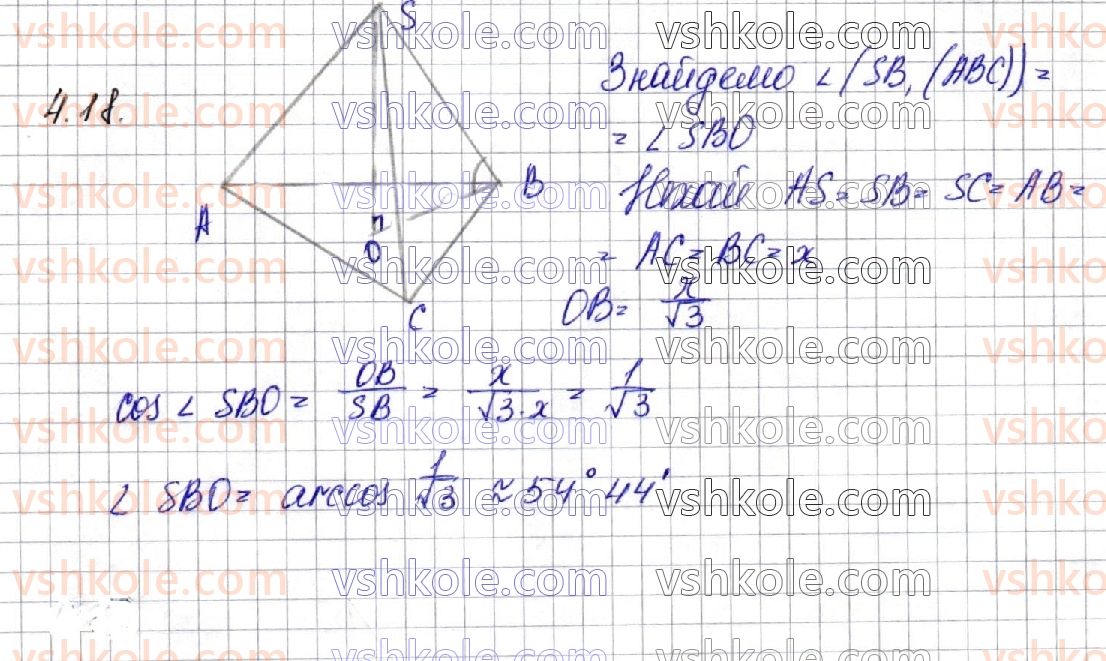 4.18.
S
A
B
O
C
Знайдемо ∠(SB, (ABC)) =
= ∠ SBO
Нехай AS = SB = SC = AB =
= AC = BC = x
OB = x/√3
cos ∠ SBO = OB/SB = x/(√3·x) = 1/√3
∠ SBO = arccos 1/√3 ≈ 54° 44'
vshkole.com